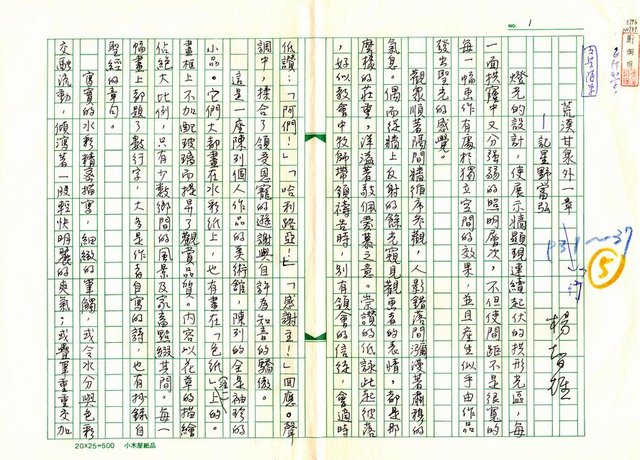 NO. 1
荒漠甘泉外一章
—記星野富弘
楊智雄
P31～37
5
燈光的設計，使展示牆頭現連續起伏的拱形光區，每
一面拱窿中又分強弱的照明層次，不但使間距不是很寬的
每一幅畫作有處於獨立空間的效果，並且產生似乎由作品
發出聖光的感覺。
觀眾順著隔間牆循序參觀，人影錯落間瀰漫著肅穆的
氣息。偶而從牆上反射的餘光窺見觀畫者的表情，都是那
麼樣的莊重，洋溢著敬佩愛慕之意。崇讚的低詠此起彼落
，好似教會中牧師帶領禱告時，別有領會的信徒，會適時
低讚：「阿們！」「哈利路亞！」「感謝主！」回應。聲
調中，揉合了領受恩寵的遜謝與自許為知音的驕傲。
這是一座陳列個人作品的美術館，陳列的全是袖珍的
小品。它們大都畫在水彩紙上，也有畫在「色紙」上的。
畫框上不加配玻璃而提昇了觀賞品質。內容以花草的描繪
佔絕大比例，只有少數鄉間的風景及家畜點綴其間。每一
幅畫上都題了數行字，大多是作者自寫的詩，也有抄錄自
聖經的章句。
寫實的水彩精密描寫，細緻的筆觸，或令水分與色彩
交融流動，傾瀉著一股輕快明麗的爽氣；或疊筆重重交加
20×25=500 小木屋紙品